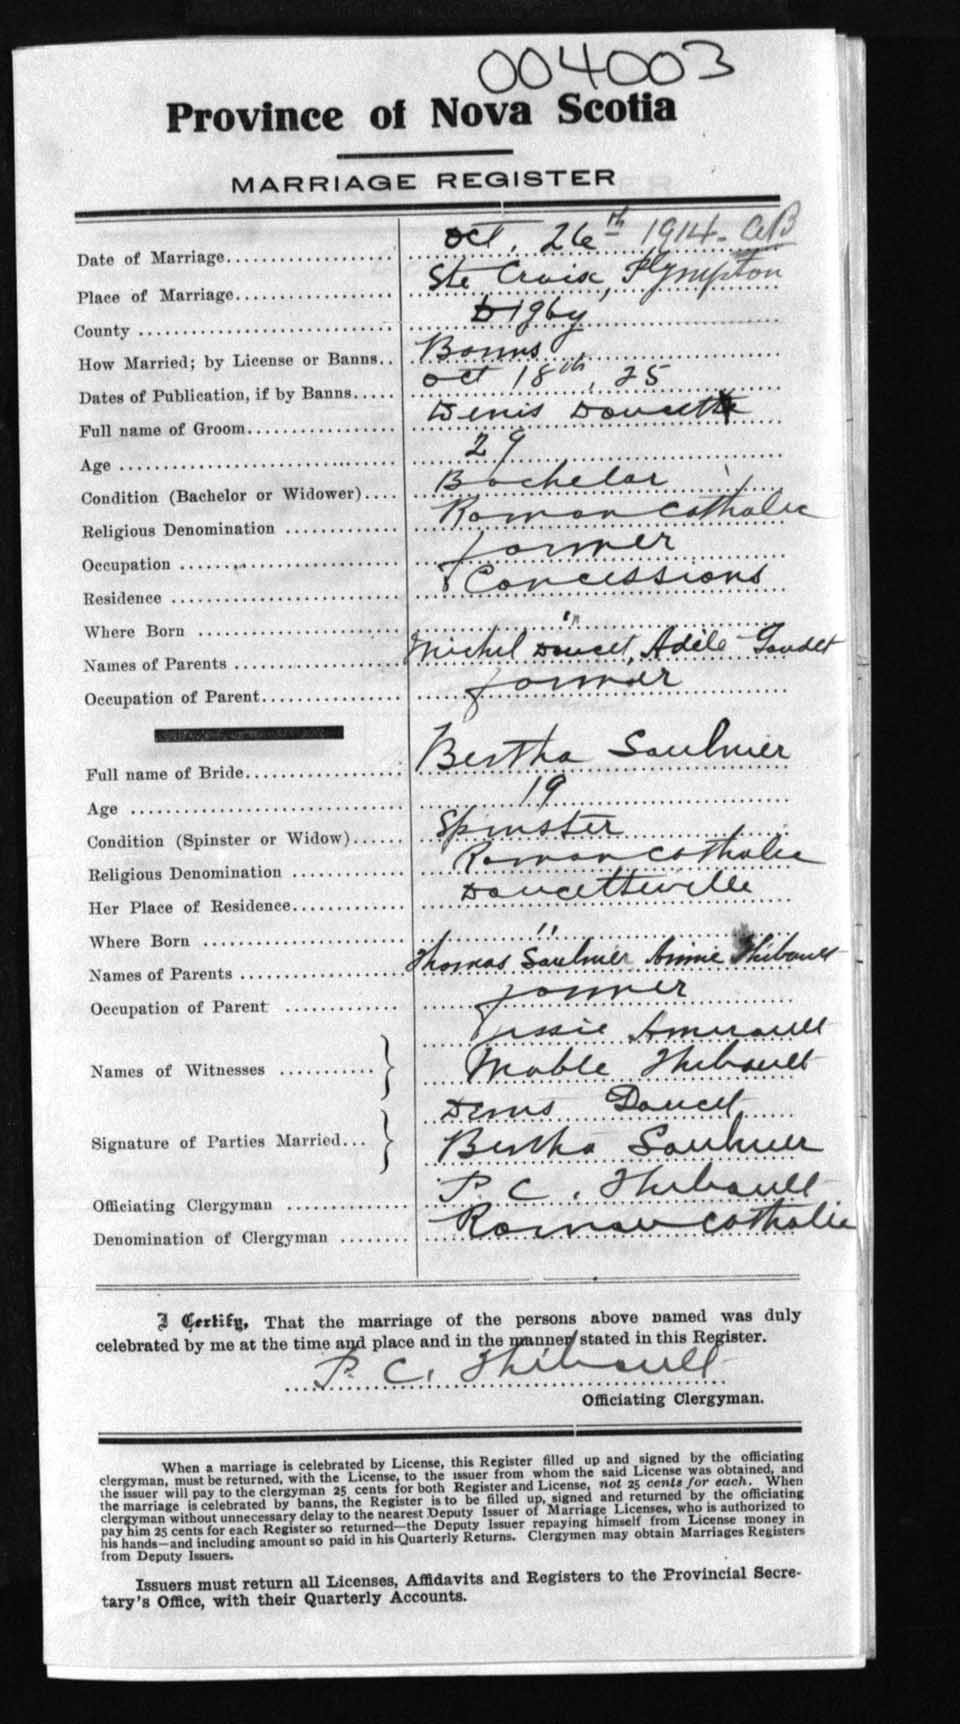 004003
Province of Nova Scotia
MARRIAGE REGISTER
Date of Marriage.................... Oct. 26th 1914. CB
Place of Marriage................... Ste Croix, Plympton
County .............................. Digby
How Married; by License or Banns.. Banns
Dates of Publication, if by Banns..... Oct 18th, 25
Full name of Groom.................. Denis Doucette
Age ................................. 29
Condition (Bachelor or Widower).... Bachelor
Religious Denomination ............. Roman Catholic
Occupation .......................... farmer
Residence ........................... Concessions
Where Born ........................ "
Names of Parents ................... Michel Doucet, Adèle Gaudet
Occupation of Parent................ farmer
Full name of Bride................... Bertha Saulnier
Age ................................. 19
Condition (Spinster or Widow)...... Spinster
Religious Denomination ............. Roman Catholic
Her Place of Residence............. Doucetteville
Where Born ........................ "
Names of Parents ................... Thomas Saulnier Annie Thibault
Occupation of Parent ............. farmer
Jessie Amirault
Names of Witnesses .......... Mable Thibault
Denis Doucet
Signature of Parties Married... Bertha Saulnier
Officiating Clergyman ............. P. C. Thibault
Denomination of Clergyman ........ Roman Catholic
I Certify, That the marriage of the persons above named was duly
celebrated by me at the time and place and in the manner stated in this Register.
P. C. Thibault
Officiating Clergyman.
When a marriage is celebrated by License, this Register filled up and signed by the officiating
clergyman, must be returned, with the License, to the issuer from whom the said License was obtained, and
the issuer will pay to the clergyman 25 cents for both Register and License, not 25 cents for each. When
the marriage is celebrated by banns, the Register is to be filled up, signed and returned by the officiating
clergyman without unnecessary delay to the nearest Deputy Issuer of Marriage Licenses, who is authorized to
pay him 25 cents for each Register so returned—the Deputy Issuer repaying himself from License money in
his hands—and including amount so paid in his Quarterly Returns. Clergymen may obtain Marriages Registers
from Deputy Issuers.
Issuers must return all Licenses, Affidavits and Registers to the Provincial Secre-
tary's Office, with their Quarterly Accounts.